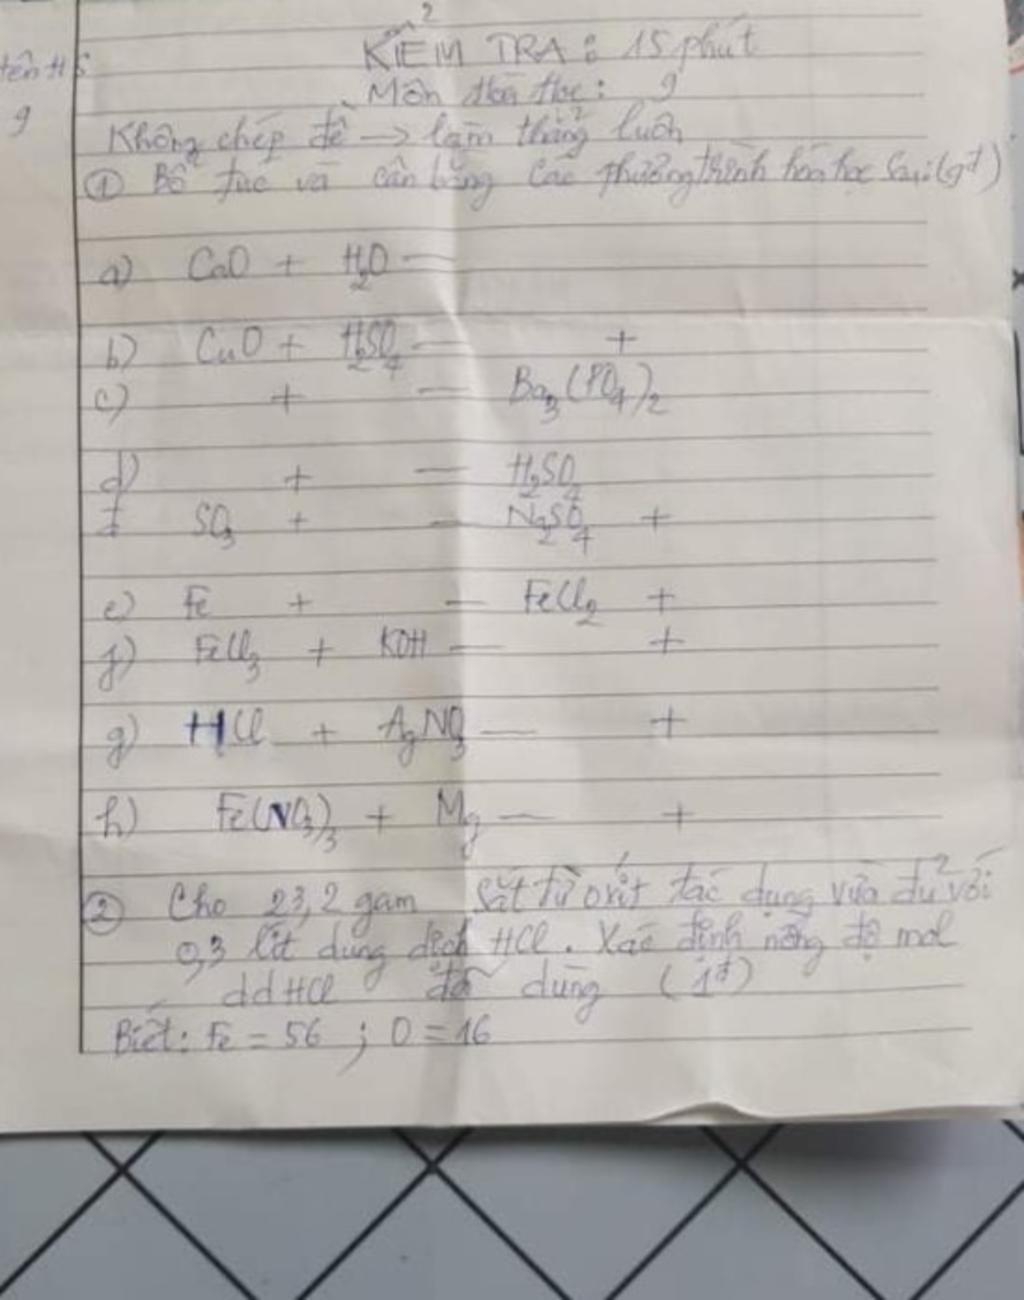 tên HS
9
KIỂM TRA : 15 phút
Môn Hoá Học : 9
Không chép đề -> làm thẳng luôn
① Bổ túc và cân bằng các phương trình hóa học sau: (9đ)
a) CaO + H2O —
b) CuO + H2SO4 — +
c) + — Ba3(PO4)2
d) + — H2SO4
SO3 + — Na2SO4 +
e) Fe + — FeCl2 +
f) FeCl3 + KOH — +
g) HCl + AgNO3 — +
h) Fe(NO3)3 + Mg — +
② Cho 23,2 gam sắt từ oxit tác dụng vừa đủ với
0,3 lít dung dịch HCl. Xác định nồng độ mol
dd HCl đã dùng (1đ)
Biết: Fe = 56 ; O = 16